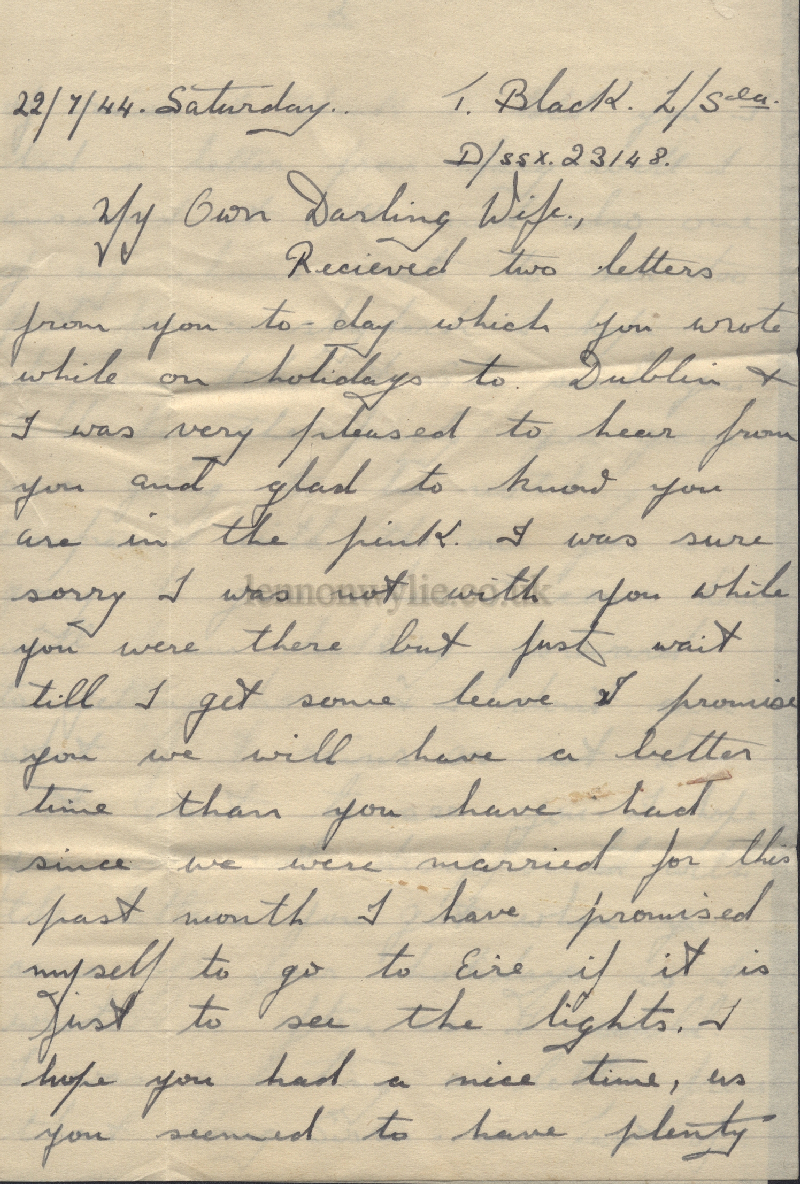 22/7/44. Saturday.. T. Black. L/Sea.
D/SSX. 23148.
My Own Darling Wife.,
Recieved two letters
from you to-day which you wrote
while on holidays to Dublin &
I was very pleased to hear from
you and glad to know you
are in the pink. I was sure
sorry I was not with you while
lennonwylie.co.uk
you were there but just wait
till I get some leave I promise
you we will have a better
time than you have had
since we were married for this
past month I have promised
myself to go to Eire if it is
just to see the lights. I
hope you had a nice time, as
you seemed to have plenty